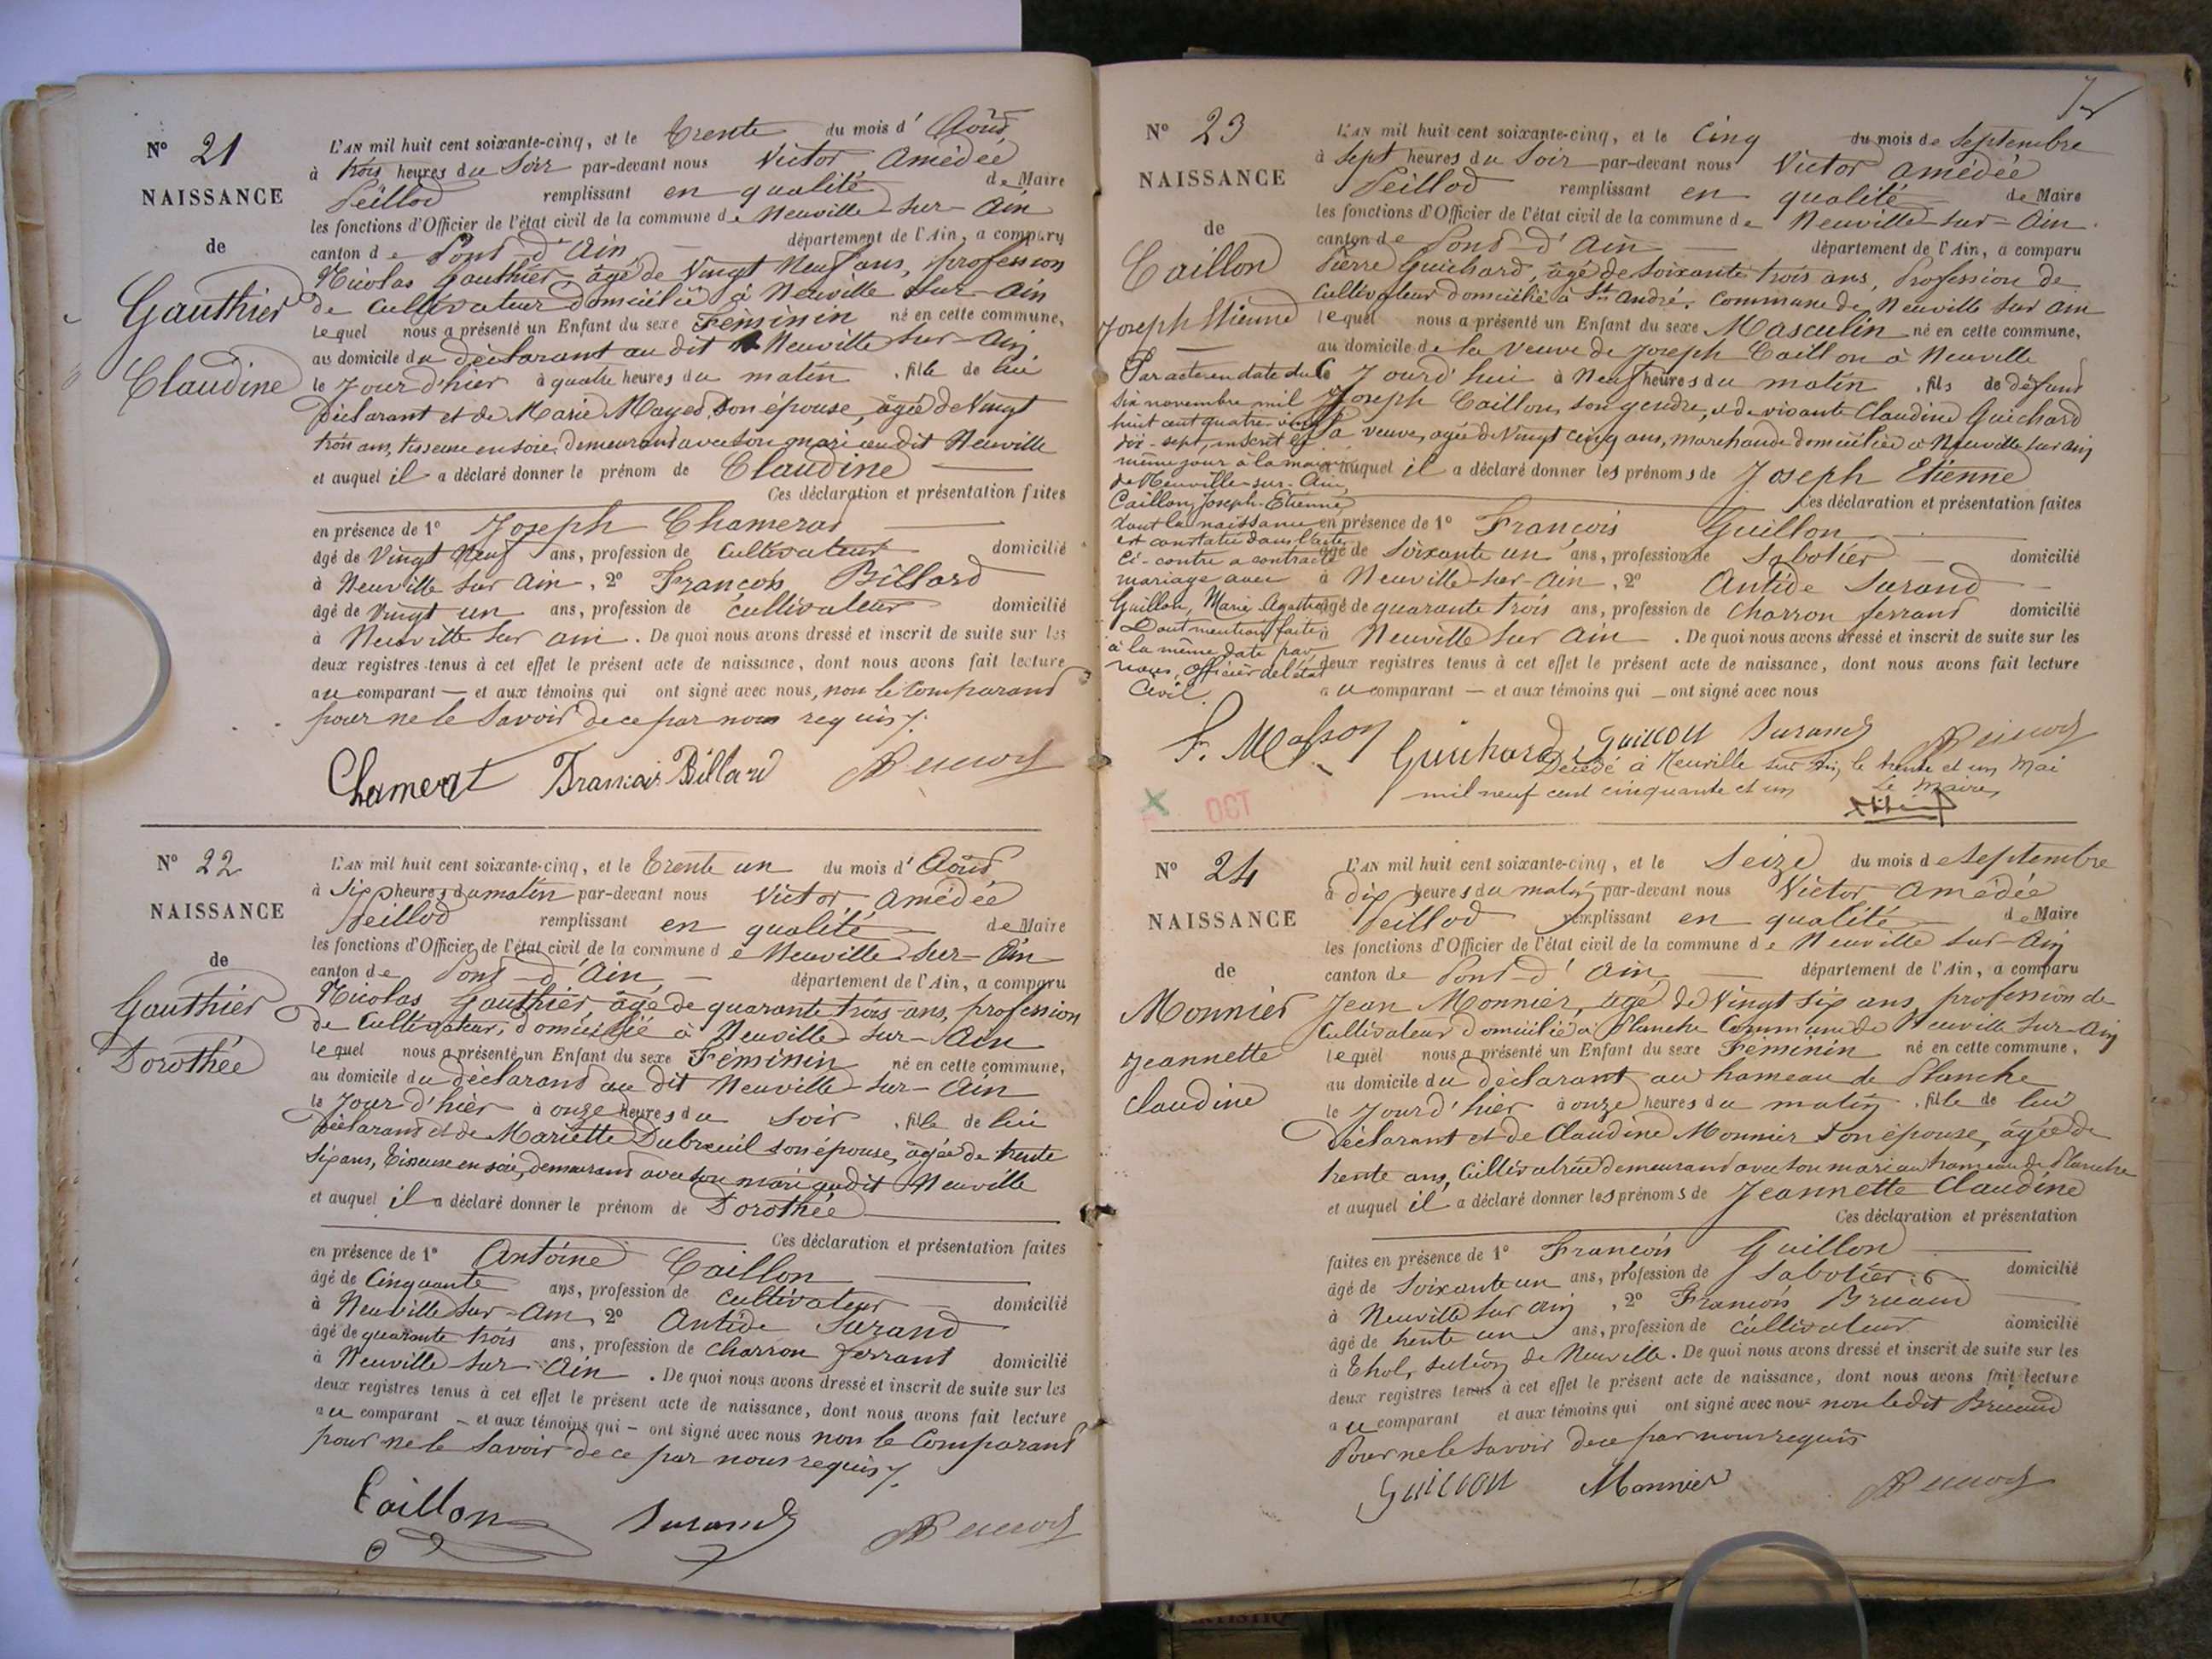 N° 21
NAISSANCE
de
Gauthier
Claudine
L'AN mil huit cent soixante-cinq, et le Trente du mois d'Août
à trois heures du Soir par-devant nous Victor Amédée
Peillod remplissant en qualité de Maire
les fonctions d'Officier de l'état civil de la commune de Neuville-sur-Ain
canton de Pont d'Ain département de l'Ain, a comparu
Nicolas Gauthier, âgé de Vingt Neuf ans, profession
de Cultivateur domicilié à Neuville sur-Ain
lequel nous a présenté un Enfant du sexe Féminin né en cette commune,
au domicile du déclarant au dit Neuville sur-Ain
le Jour d'hier à quatre heures du matin, fille de lui
Déclarant et de Marie Mayed son épouse, âgée de Vingt
trois ans, tisseuse en soie, demeurant avec son mari au dit Neuville
et auquel il a déclaré donner le prénom de Claudine
Ces déclaration et présentation faites
en présence de 1° Joseph Chamerat
âgé de Vingt Neuf ans, profession de Cultivateur domicilié
à Neuville sur Ain, 2° François Billard
âgé de Vingt un ans, profession de cultivateur domicilié
à Neuville sur ain. De quoi nous avons dressé et inscrit de suite sur les
deux registres tenus à cet effet le présent acte de naissance, dont nous avons fait lecture
au comparant — et aux témoins qui ont signé avec nous, non le Comparant
pour ne le Savoir de ce par nous requis.
Chamerat François Billard
N° 22
NAISSANCE
de
Gauthier
Dorothée
L'AN mil huit cent soixante-cinq, et le Trente un du mois d'Août
à Six heures du matin par-devant nous Victor Amédée
Peillod remplissant en qualité de Maire
les fonctions d'Officier de l'état civil de la commune de Neuville-sur-Ain
canton de Pont-d'Ain département de l'Ain, a comparu
Nicolas Gauthier, âgé de quarante trois ans, profession
de Cultivateur, domicilié à Neuville-sur-Ain
lequel nous a présenté un Enfant du sexe Féminin né en cette commune,
au domicile du déclarant au dit Neuville-sur-Ain
le Jour d'hier à onze heures du soir, fille de lui
Déclarant et de Mariette Dubreuil son épouse, âgée de trente
Six ans, Tisseuse en soie, demeurant avec son mari au dit Neuville
et auquel il a déclaré donner le prénom de Dorothée
Ces déclaration et présentation faites
en présence de 1° Antoine Caillon
âgé de Cinquante ans, profession de Cultivateur domicilié
à Neuville sur-Ain, 2° Antide Surand
âgé de quarante trois ans, profession de Charron ferrant domicilié
à Neuville-sur-Ain. De quoi nous avons dressé et inscrit de suite sur les
deux registres tenus à cet effet le présent acte de naissance, dont nous avons fait lecture
au comparant — et aux témoins qui — ont signé avec nous non le Comparant
pour ne le Savoir de ce par nous requis.
Caillon Surand
N° 23
NAISSANCE
de
Caillon
Joseph Etienne
Par acte en date du
six novembre mil
huit cent quatre-vingt
dix-sept, inscrit le
même jour à la mairie
de Neuville-sur-Ain,
Caillon, Joseph-Etienne,
dont la naissance
est constatée dans l'acte
ci-contre a contracté
mariage avec
Guillon, Marie Agathe
Dont mention faite
à la même date par
nous, Officier de l'état
Civil.
F. Masson
L'AN mil huit cent soixante-cinq, et le Cinq du mois de Septembre
à Sept heures du Soir par-devant nous Victor Amédée
Peillod remplissant en qualité de Maire
les fonctions d'Officier de l'état civil de la commune de Neuville-sur-Ain.
canton de Pont-d'Ain département de l'Ain, a comparu
Pierre Guichard, âgé de soixante trois ans, Profession de
Cultivateur domicilié à St André, commune de Neuville sur ain
lequel nous a présenté un Enfant du sexe Masculin né en cette commune,
au domicile de la veuve de Joseph Caillon à Neuville
Ce Jourd'hui à Neuf heures du matin, fils de défunt
Joseph Caillon, son gendre, et de vivante Claudine Guichard
sa veuve, agée de Vingt cinq ans, marchande domiciliée à Neuville sur ain
et auquel il a déclaré donner les prénoms de Joseph Etienne
Ces déclaration et présentation faites
en présence de 1° François Guillon
âgé de Soixante un ans, profession de Sabotier domicilié
à Neuville-sur-Ain, 2° Antide Surand
âgé de quarante trois ans, profession de Charron ferrant domicilié
à Neuville sur Ain. De quoi nous avons dressé et inscrit de suite sur les
deux registres tenus à cet effet le présent acte de naissance, dont nous avons fait lecture
au comparant — et aux témoins qui — ont signé avec nous
Guichard Guillon Surand
Décédé à Neuville sur Ain, le trente et un Mai
mil neuf cent cinquante et un Le Maire,
OCT
N° 24
NAISSANCE
de
Monnier
Jeannette
Claudine
L'AN mil huit cent soixante-cinq, et le Seize du mois de Septembre
à dix heures du matin par-devant nous Victor Amédée
Peillod remplissant en qualité de Maire
les fonctions d'Officier de l'état civil de la commune de Neuville sur-Ain
canton de Pont-d'Ain département de l'Ain, a comparu
Jean Monnier, âgé de Vingt Six ans, profession de
Cultivateur domicilié à Planche Commune de Neuville sur-Ain
lequel nous a présenté un Enfant du sexe Féminin né en cette commune,
au domicile du déclarant au hameau de Planche
le Jour d'hier à onze heures du matin, fille de lui
Déclarant et de Claudine Monnier son épouse, âgée de
trente ans, Cultivatrice demeurant avec son mari au hameau de Planche
et auquel il a déclaré donner les prénoms de Jeannette Claudine
Ces déclaration et présentation
faites en présence de 1° François Guillon
âgé de Soixante un ans, profession de Sabotier domicilié
à Neuville sur ain, 2° François Bruand
âgé de trente un ans, profession de cultivateur domicilié
à Thol, section de Neuville. De quoi nous avons dressé et inscrit de suite sur les
deux registres tenus à cet effet le présent acte de naissance, dont nous avons fait lecture
au comparant et aux témoins qui ont signé avec nous non ledit Bruand
Pour ne le savoir de ce par nous requis
Guillon Monnier